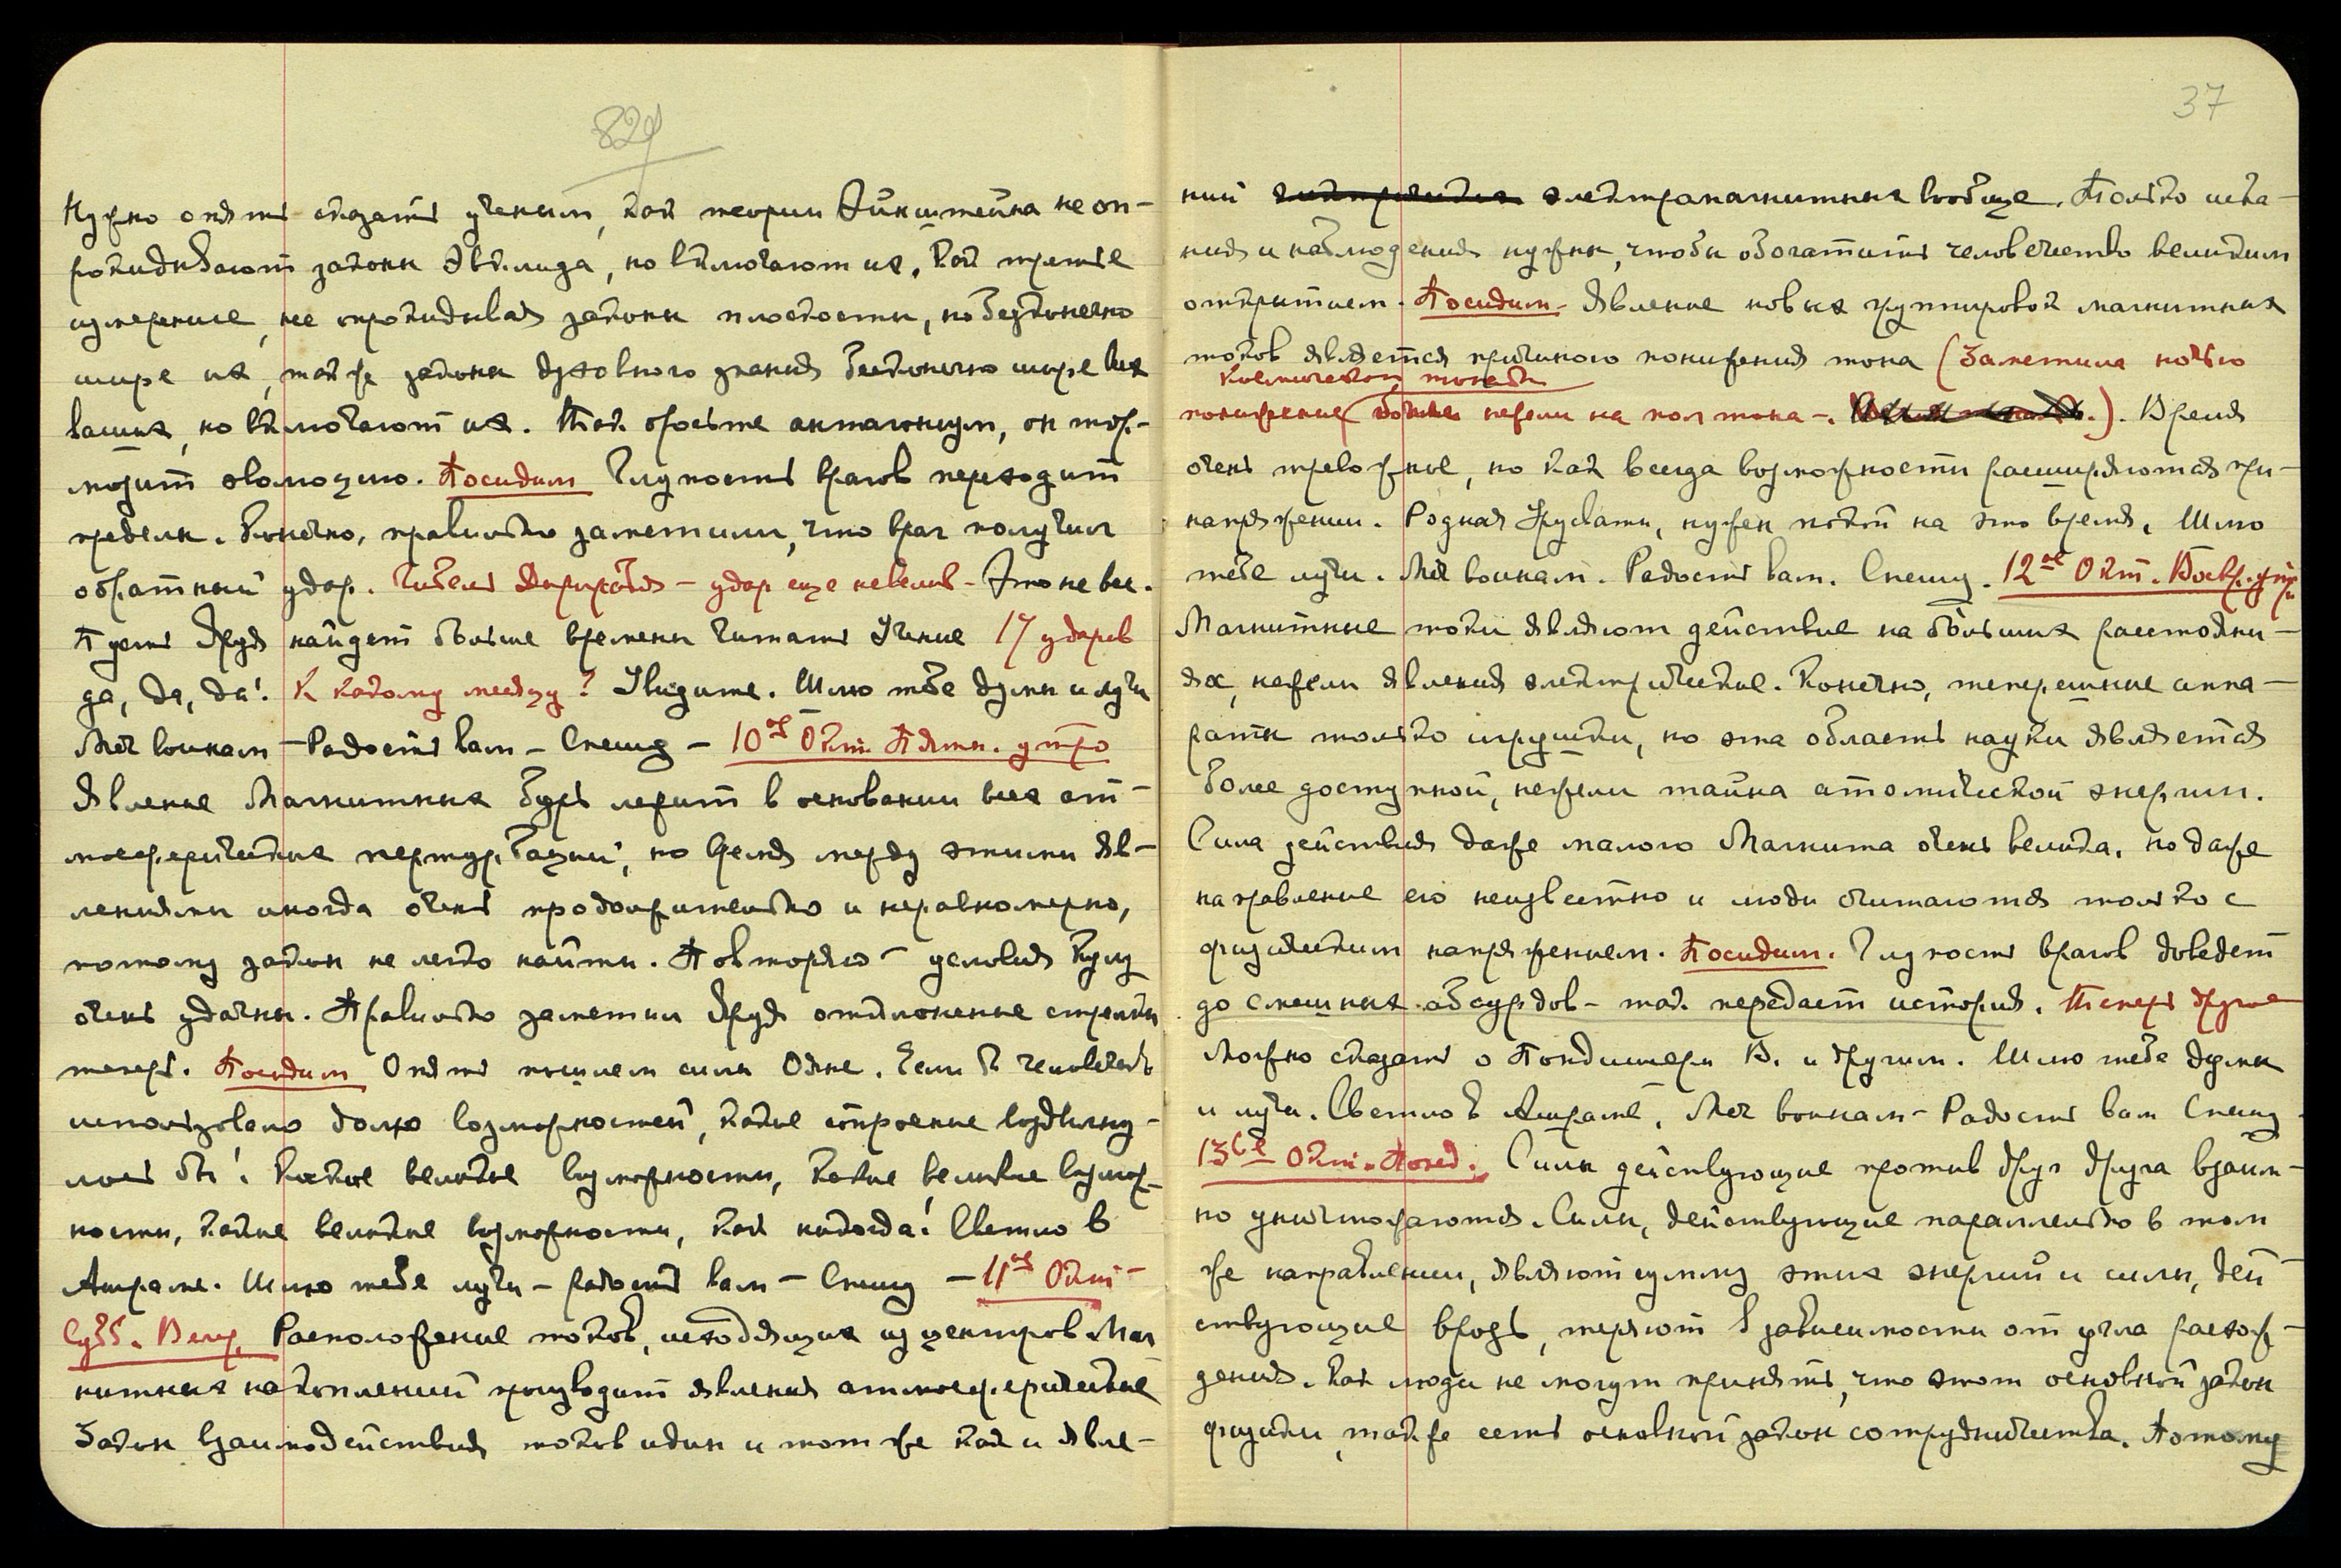 82у
Нужно опять сказать ученым, как теории Эйнштейна не оп-
рокидывают законы Эвклида, но включают их. Как третье
измерение, не опрокидывая законы плоскости, но бесконечно
шире их, также законы духовного знания бесконечно шире всех
ваших, но включают их. Так бросьте антагонизм, он тор-
мозит эволюцию. Посидим Глупость врагов переходит
пределы. Конечно, правильно заметили, что враг получил
обратный удар. Гибель Дирижабля – удар еще невелик – Это не все.
Пусть Друзья найдет больше времени Читать Учение 17 ударов
да, да, да! К какому месяцу? Увидите. Шлю тебе думы и лучи
Меч воинам – Радость вам – Спешу – 10ое Окт. Пятн. утро
Явление Магнитных бурь лежит в основании всех ат-
мосферических пертурбаций, но время между этими яв-
лениями иногда очень продолжительно и неравномерно,
потому закон не легко найти. Повторяю – условия Кулу
очень удачны. Правильно заметил Друг отклонение стрелки
теперь. Посидим Опять пошлем силы Ояне. Если б человечество
использовало долю возможностей, какие строение воздвигну-
лось бы! Какие великие возможности, какие великие возмож-
ности, какие великие возможности, как никогда! Светло в
Ашраме. Шлю тебе лучи – радость вам – Спешу – 11ое Окт –
Суб. Веч. Расположение токов, исходящих из центров Маг
нитных накоплений производит явления атмосферические
Закон Взаимодействия токов один и тот же как и явле-
37
ний электромагнитных вообще. Только иска-
ния и наблюдения нужны, чтобы обогатить человечество великим
открытием. Посидим. Явление новых группировок магнитных
токов является причиною понижения тона (Заметила ночью
космической
понижение (больше нежели на пол тона –.). Время
очень тревожное, но как всегда возможности расширяются при
напряжении. Родная Урусвати, нужен покой на это время. Шлю
тебе лучи. Меч воинам. Радость вам. Спешу. 12ое Окт. Воскр. утр.
Магнитные токи являют действие на больших расстояни-
ях, нежели явления электрические. Конечно, теперешние аппа-
раты только игрушки, но эта область науки является
более доступной, нежели тайна атомической энергии.
Сила действия даже малого Магнита очень велика, но даже
направление его неизвестно и люди считаются только с
физическим напряжением. Посидим. Глупость врагов доведет
до смешных абсурдов – так передаст история. Теперь другое
Можно сказать о Пондишери В. и другим. Шлю тебе думы
и лучи. Светло в Ашраме. Меч воинам – Радость вам Спешу –
13ое Окт. Понед. Силы действующие против друг друга взаим-
но уничтожаются. Силы, действующие параллельно в том
же направлении, являют сумму этих энергий и силы, дей
ствующие врозь, теряют в зависимости от угла расхож-
дения. Как люди не могут принять, что этот основной закон
физики, также есть основной закон сотрудничества. Потому